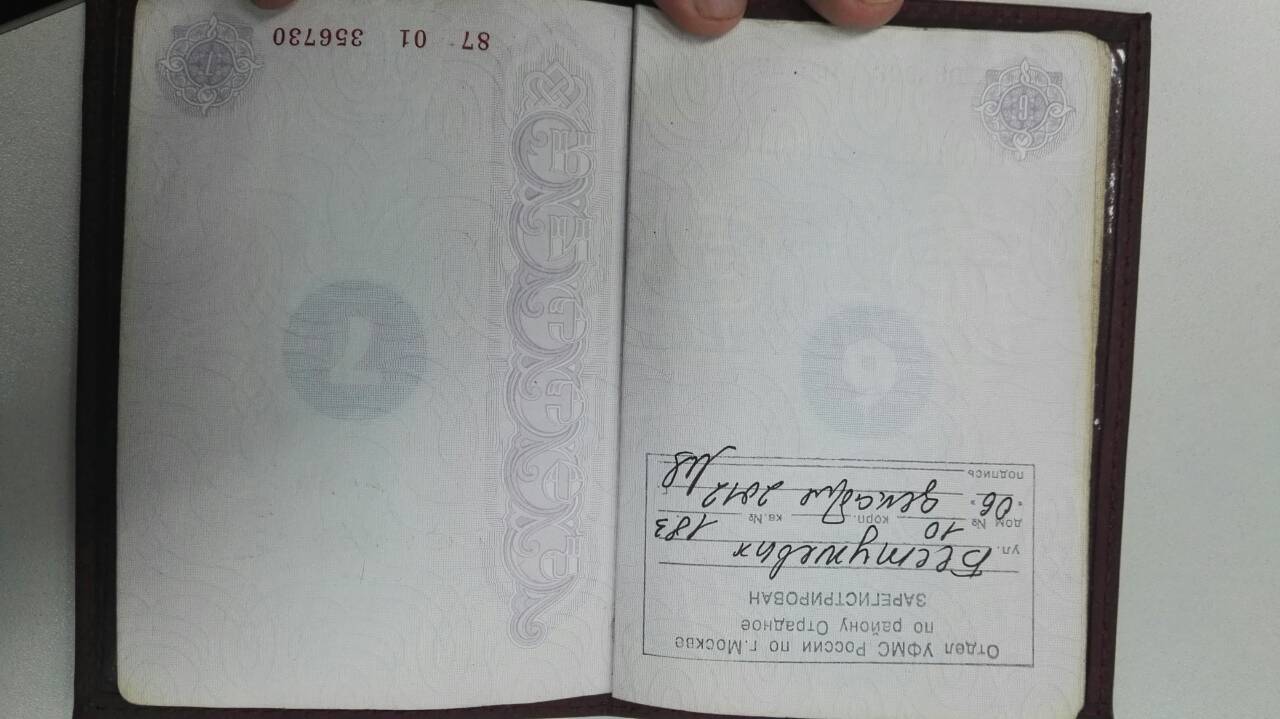 Отдел УФМС России по г.Москве
по району Отрадное
ЗАРЕГИСТРИРОВАН
ул. Бестужевых
дом № 10 корп. кв.№ 183
"06" декабря 2012
подпись
6
7
6
7
87 01 356730